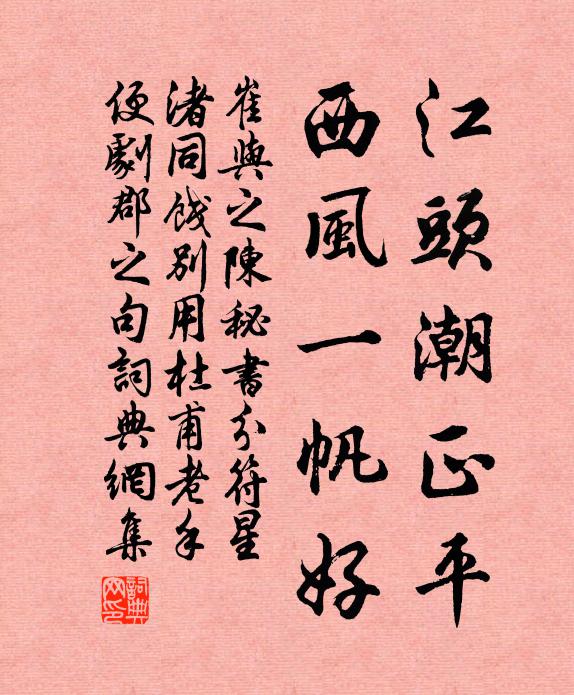 江頭潮正平
西風一帆好
崔與之陳秘書分符星
渚同餞別用杜甫老手
便劇郡之句詞典網集